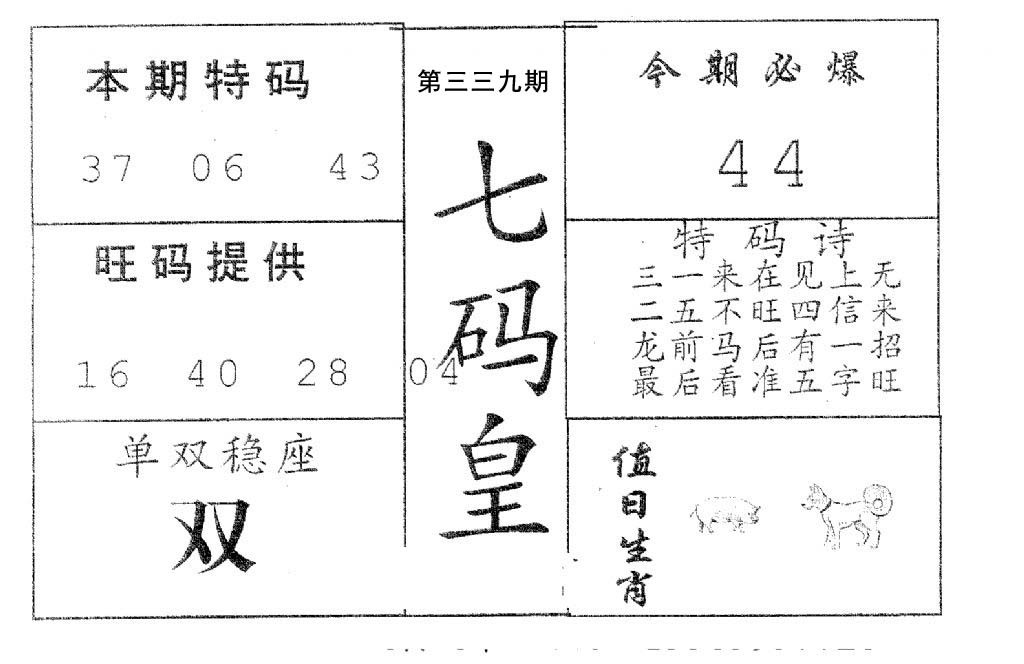 本期特码
37 06 43
旺码提供
16 40 28 04
单双稳座
双
第三三九期
七码皇
今期必爆
44
特码诗
三一来在见上无
二五不旺四信来
龙前马后有一招
最后看准五字旺
值日生肖